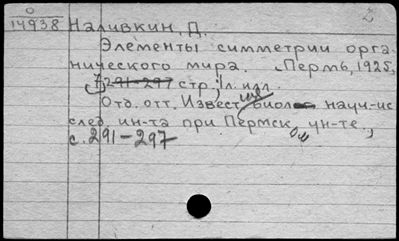 О
14938 Наливкин, Д.
2
Элементы симметрии орга-
нического мира. Пермь, 1925,
7 291-297 стр; 1 л. илл.
Отд. отт. Извест. биол. науч-ис
след. ин-та при Пермск. ун-те,
с. 291-297